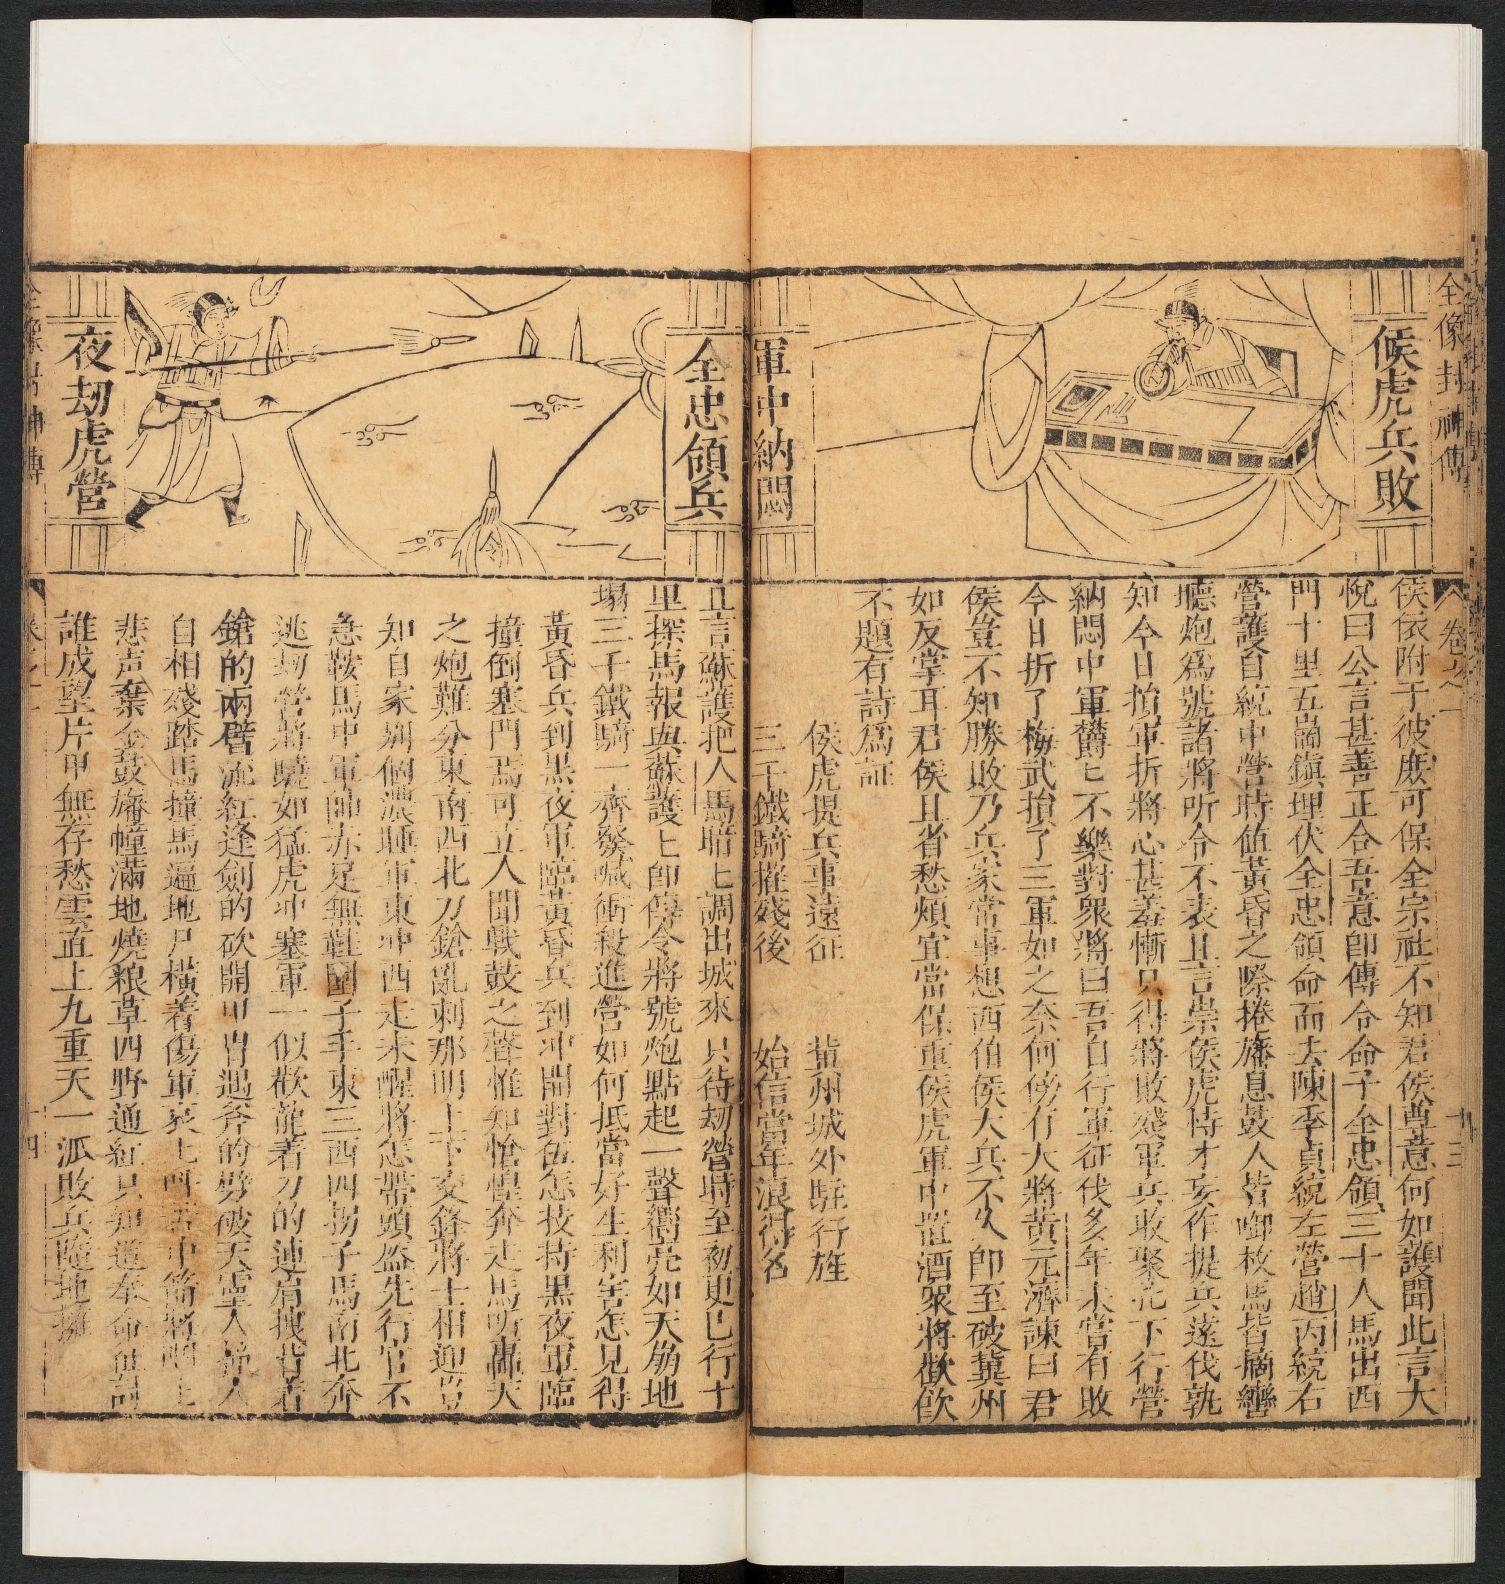 全像封神傳
卷之一
十三
侯虎兵敗
軍中納悶
侯依附于彼庶可保全宗祉不知君侯尊意何如護聞此言大
悅曰公言甚善正合吾意即傳令命子全忠領三千人馬出西
門十里五崗鎮埋伏全忠領命而去陳季貞統左營趙丙統右
營護自統中營時值黃昏之際捲旛息鼓人皆啣枚馬皆摘轡
聽炮爲號諸將听令不表且言崇侯虎恃才妄作提兵遠伐孰
知今日損軍折將心甚羞慚只得將敗殘軍兵收聚屯下行營
納悶中軍欝匕不樂對眾將曰吾自行軍征伐多年未嘗有敗
今日折了梅武損了三軍如之奈何傍有大將黃元濟諫曰君
侯豈不知勝敗乃兵家常事想西伯侯大兵不久即至破冀州
如反掌耳君侯且省愁煩宜當保重侯虎軍中置酒眾將歡飲
不題有詩爲証
侯虎提兵事遠征 冀州城外駐行旌
三千鐵騎摧殘後 始信當年浪得名
全忠領兵
夜刧虎營
且言蘇護把人馬暗匕調出城來只待刼營時至初更已行十
里探馬報與蘇護匕即傳令將號炮點起一聲響亮如天崩地
塌三千鐵騎一齊發喊衝殺進營如何抵當好生利害怎見得
黃昏兵到黑夜軍臨黃昏兵到冲開對伍怎技持黑夜軍臨
撞倒塞門焉可立人聞戰鼓之聲惟知愴惶奔走馬听轟天
之炮難分東南西北刀鎗亂刺那明上下交鋒將士相迎豈
知自家别個濃睡軍東冲西走未醒將怎帶頭盔先行官不
急鞍馬中軍帥赤足無鞋圍子手東三西四拐子馬南北奔
逃刼營將驍如猛虎冲塞軍一似歡龍着刀的連肩拽背着
鎗的兩臂流紅逢劍的砍開甲冑遇斧的劈破天靈人撞人
自相殘踏馬撞馬遍地尸橫着傷軍哀匕叫苦中箭將咽匕
悲声棄金鼓旛幢滿地燒粮草四野通紅只知道奉命征討
誰成望片甲無存愁雲直上九重天一派敗兵隨地擁
卷之一
十四